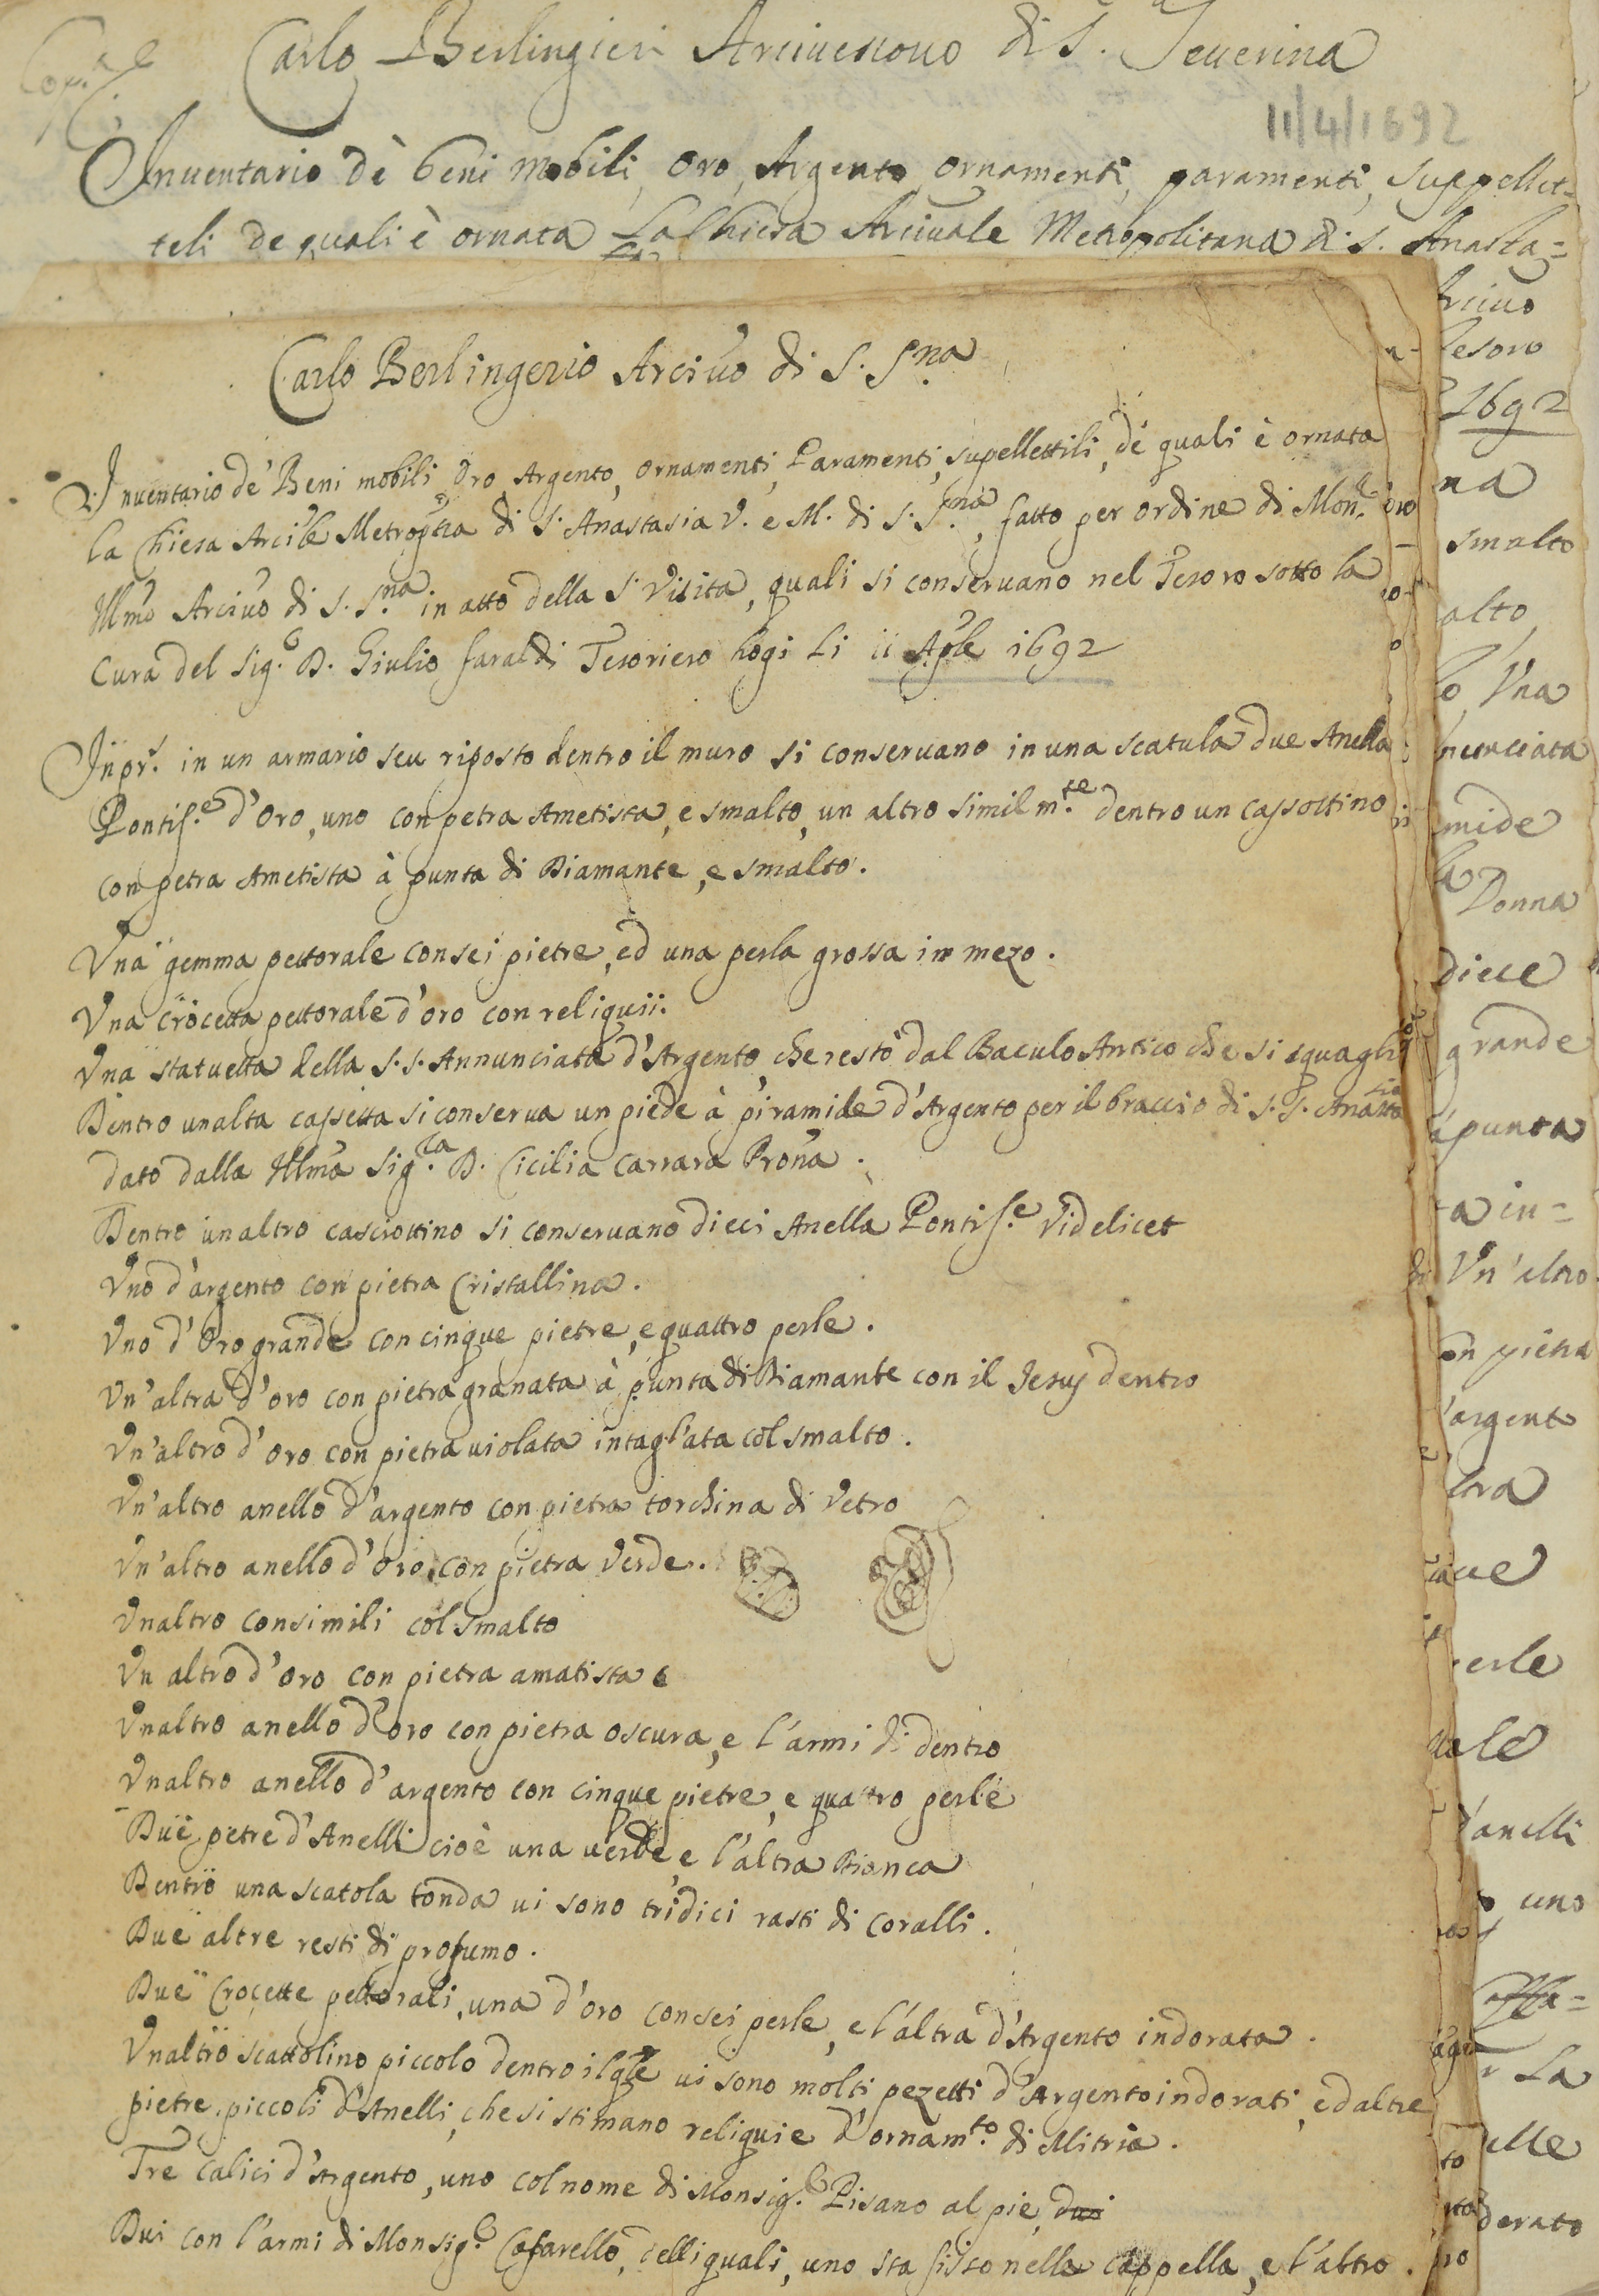 Carlo Berlingieri Arciuescouo di S. Seuerina
11/4/1692
Inuentario dè beni mobili, oro, Argento, ornamenti, paramenti, suppellet=
teli de quali è ornata la Chiesa Arciuale Metropolitana di S. Anasta=
Carlo Berlingerio Arciuo di S. Sna
Inuentario de' Beni mobili Oro Argento, ornamenti, Paramenti, supellettili, de' quali è ornata
la Chiesa Arcile Metroptna di S. Anastasia V. e M. di S. Sna, fatto per ordine di Monr
Illmo Arciuo di S. Sna in atto della S. Visita, quali si conseruano nel Tesoro sotto la
cura del Sig.r D. Giulio faraldi Tesoriero hogi li ii Aple 1692
Inpr.s in un armario seu riposto dentro il muro si conseruano in una scatula due Anella
Pontif.e d'Oro, uno con petra Ametista, e smalto, un altro similm.te dentro un cassottino
con petra Ametista à punta di Diamante, e smalto.
Vna gemma pettorale con sei pietre, ed una perla grossa in mezo.
Vna crocetta pettorale d'oro con reliquii.
Vna statuetta della S.S. Annunciata d'Argento, che restò dal Baculo Antico che si squagliò
Dentro unalta cassetta si conserua un piede à piramide d'Argento per il braccio di S.S. Anastasia
dato dalla Illma Sig.ra D. Cicilia Carrara Prona.
Dentro unaltro casciottino si conseruano dieci Anella Pontif.e Videlicet
Vno d'argento con pietra Cristallina.
Vno d'Oro grande con cinque pietre, e quattro perle.
Vn'altra d'oro con pietra granata à punta di Diamante con il Jesus dentro
Vn'altro d'oro con pietra uiolata intagl'ata col smalto.
Vn'altro anello d'argento con pietra torchina di Vetro
Vn'altro anello d'oro con pietra Verde.
Vnaltro consimili col smalto
Vn altro d'oro con pietra amatista
Vnaltro anello d'oro con pietra oscura, e l'armi di dentro
Vnaltro anello d'argento con cinque pietre, e quattro perle
Due petre d'Anelli cioè una uerde, e l'altra Bianca
Dentro una scatola tonda ui sono tridici rasti di coralli.
Due altre resti di profumo.
Due Crocette pettorali, una d'oro con sei perle, e l'altra d'Argento indorata.
Vnaltro scattolino piccolo dentro il qle ui sono molti pezetti d'Argento indorati, ed altre
pietre piccoli d'Anelli, che si stimano reliquie d'ornam.to di Mitria.
Tre calici d'Argento, uno col nome di Monsig.r Pisano al pie, dui
Dui con l'armi di Monsig.r Cafarello, delli quali, uno sta fisso nella cappella, e l'altro.
Arciuo
Tesoro
1692
na
smalto
alto
lo, Vna
nunciata
mide
la Donna
diece
grande
à punta
ta in=
Vn'altro
on pietra
d'argento
ltra
que
perle
d'anelli
uno
La
elle
dorato